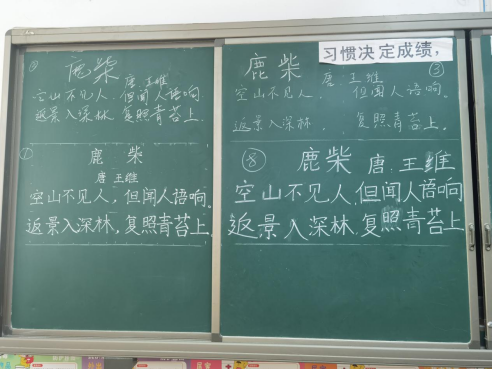 鹿柴
唐 王维
空山不见人,但闻人语响。
返景入深林,复照青苔上。
①
鹿 柴
唐 王维
空山不见人,但闻人语响
返景入深林,复照青苔上.
习惯决定成绩,
鹿柴
唐 王维 ③
空山不见人, 但闻人语响.
返景入深林, 复照青苔上.
⑧ 鹿柴 唐.王维
空山不见人,但闻人语响
返景入深林.复照青苔上